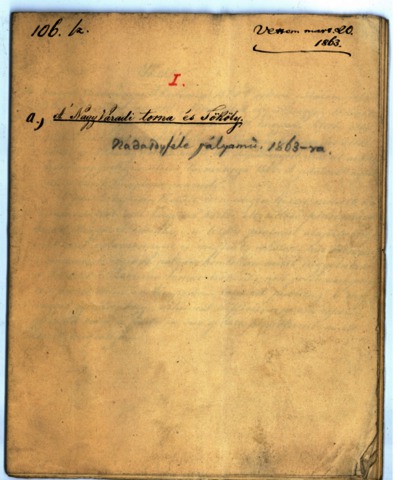 106. /z.
Vettem mart. 20.
1863.
I.
a., A Nagyváradi torna és Tököly.
Nádasdyféle pályamű. 1863-ra.